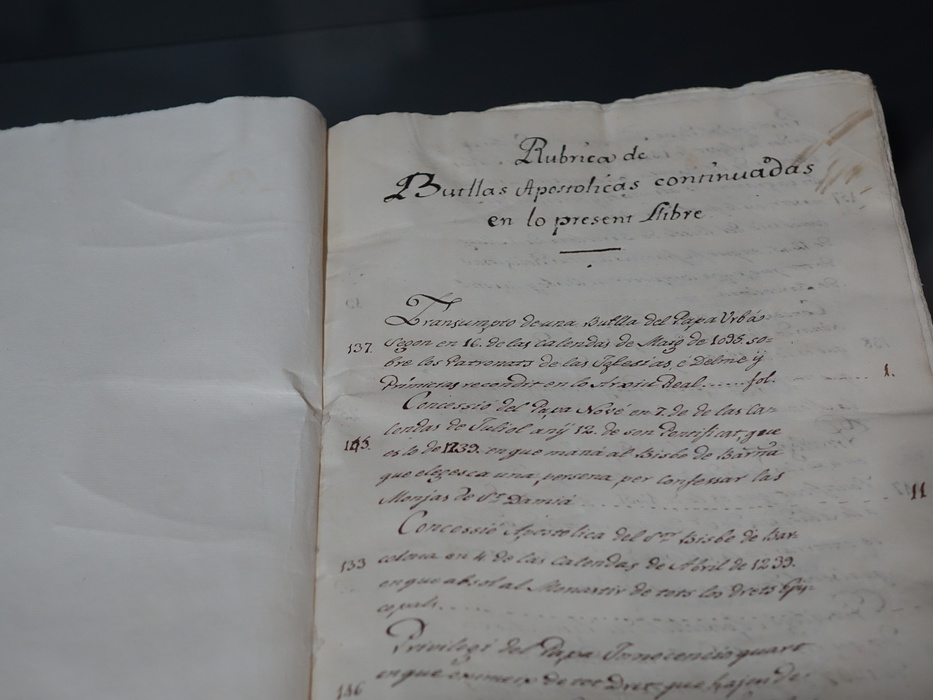 Rubrica de
Butllas Apostolicas continuadas
en lo present Llibre
Transumpto de una Butlla del Papa Urbá
137. Segon en 16. de las Calendas de Maig de 1095. so-
bre los Patronats de las Iglesias, é Delme y
Primicias recondit en lo Arxiu Real...... fol. 1.
Concessió del Papa Nové en 7. de de las Ca-
lendas de Juliol any 12. de son Pontificat, que
es lo de 1239. en que maná al Bisbe de Barña
que elegesca una persona per confessar las
Monjas de St. Damiá 11
Concessió Apostolica del Sr. Bisbe de Bar-
133 celona en 4. de las Calendas de Abril de 1239.
en que absol al Monastir de tots los drets Epis-
copals.
Privilegi del Papa Innocencio quart
146 en que eximeix de tot Dret que hajen de